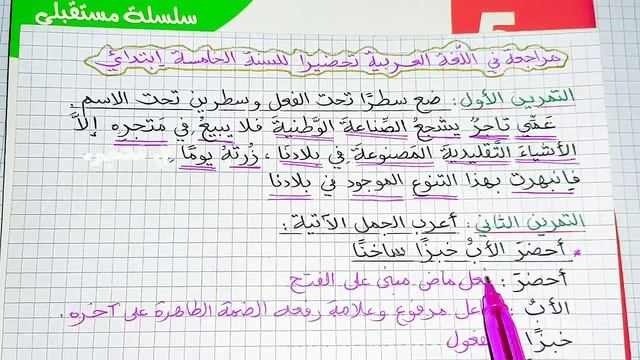 سلسلة مستقبلي
5
مراجعة في اللّغة العربية تحضيرا للسنة الخامسة إبتدائي
التمرين الأول: ضع سطرًا تحت الفعل وسطرين تحت الاسم.
عَمّي تاجرٌ يشجعُ الصِّناعةَ الوَّطنيةَ فلا يبيعُ في مَتجره إلاَّ
الأشياءَ التَّقليديةَ المَصنوعةَ في بلادنَا، زُرتهُ يومًا
فانبهرت بهذا التنوع الموجود في بلادنا
التمرين الثاني: أعرب الجمل الآتية:
* أحضرَ الأبُ خبزًا ساخنًا
أحضرَ: فعل ماض مبني على الفتح
الأبُ: مرفوع وعلامة رفعه الضمة الظاهرة على آخره.
خبزًا